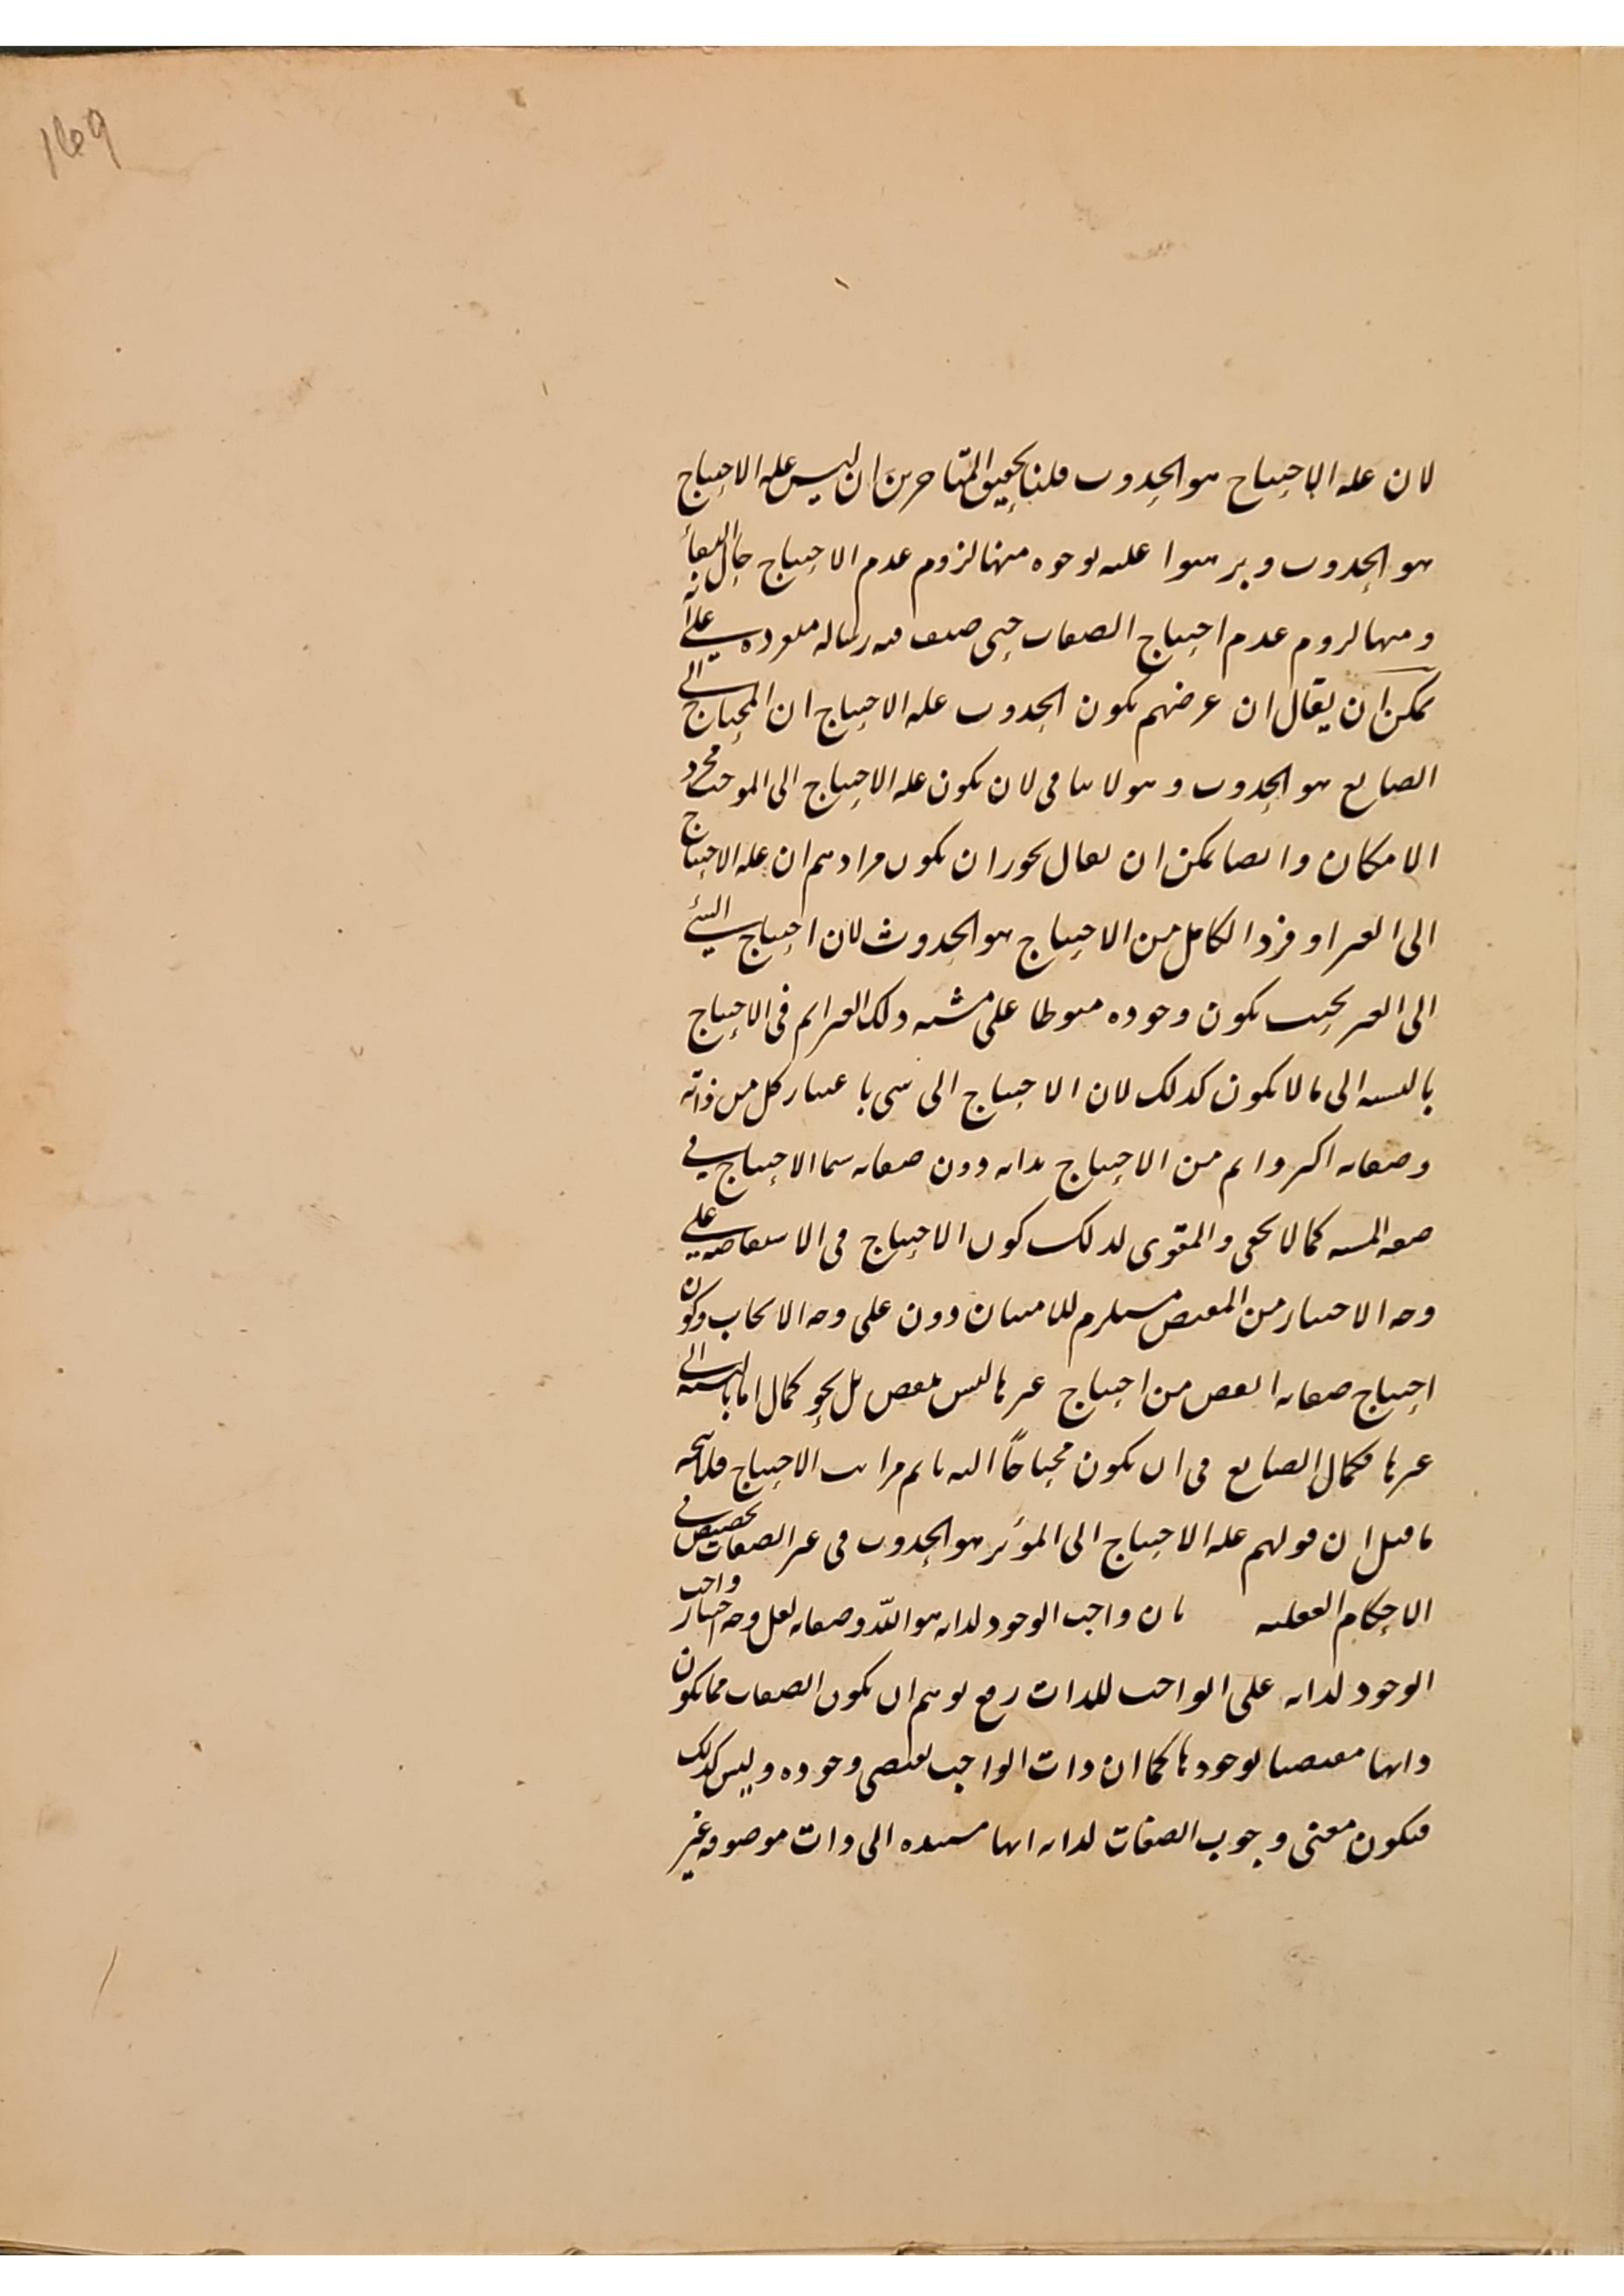 169
لان علة الاحتياج هو الحدوث قلنا تحقيق المتأخرين ان ليس علة الاحتياج
هو الحدوث وبرهنوا عليه بوجوه منها لزوم عدم الاحتياج حال البقاء
ومنها لزوم عدم احتياج الصفات حتى صنف فيه رسالة مفردة على انه
يمكن ان يقال ان غرضهم بكون الحدوث علة الاحتياج ان المحتاج الى
الصانع هو الحدوث وهو لا ينافى لان يكون علة الاحتياج الى الموجب مجرد
الامكان وايضا يمكن ان يقال يجوز ان يكون مرادهم ان علة الاحتياج
الى الغير او فرد الكامل من الاحتياج هو الحدوث لان احتياج الشئ
الى الغير بحيث يكون وجوده منوطا على مشية ذلك الغير اتم فى الاحتياج
بالنسبة الى ما لا يكون كذلك لان الاحتياج الى شى باعتبار كل من ذاته
وصفاته اكثر واتم من الاحتياج بذاته دون صفاته سيما الاحتياج فى
صفة المشية كما لا يخفى والمقوى لذلك كون الاحتياج فى الاستفاضة على
وجه الاختيار من المفيض مستلزم للامتنان دون على وجه الايجاب وكون
احتياج صفاته انقص من احتياج غيرها ليس بنقص بل نحو كمال اما بالنسبة الى
غيرها فكمال الصانع فى ان يكون محتاجًا اليه باتم مراتب الاحتياج فلا يتجه
ما قيل ان قولهم علة الاحتياج الى المؤثر هو الحدوث فى غير الصفات تخصيص فى
الاحكام العقلية بان واجب الوجود لذاته هو الله وصفاته لعل وجه اختيار واجب
الوجود لذاته على الواجب للذات رفع توهم ان يكون الصفات مما يكون
ذاتها مقتضيا لوجودها كما ان ذات الواجب يقتضى وجوده وليس كذلك
فيكون معنى وجوب الصفات لذاته انها مستندة الى ذات موصوفه غير